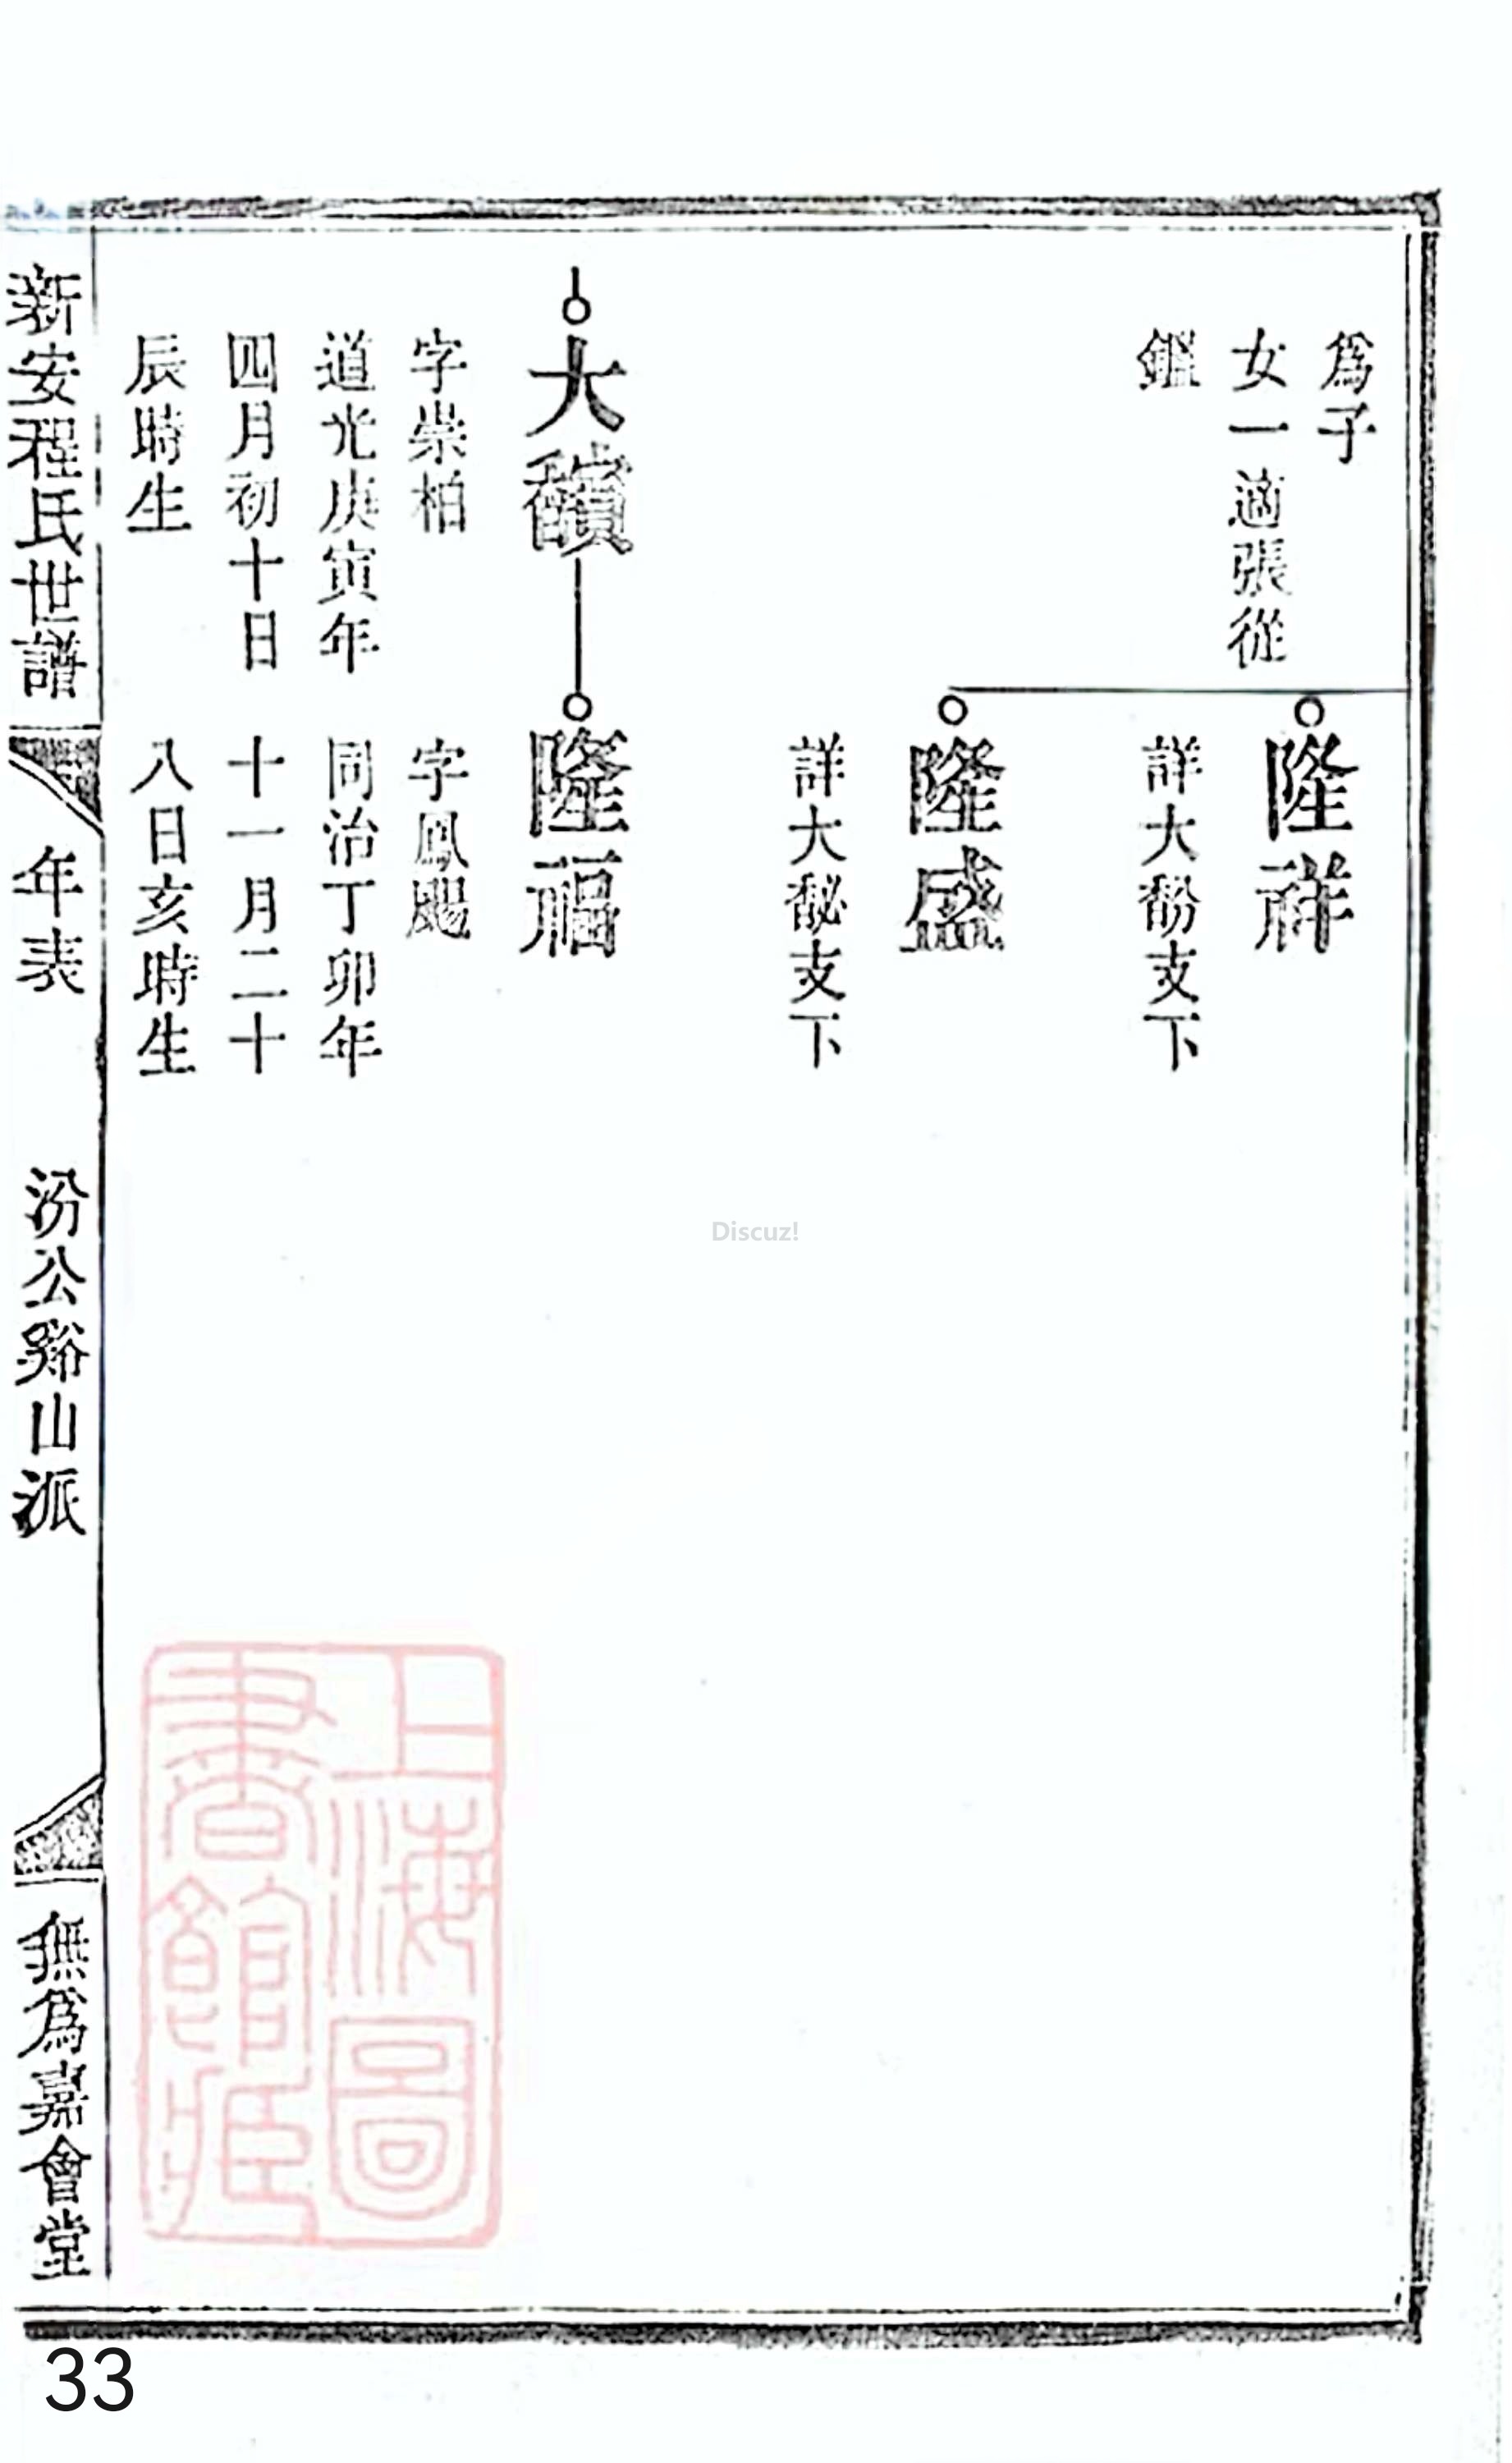 爲子
女一適張從
鑑
隆祥
詳大馚支下
隆盛
詳大馝支下
大馩
字崇柏
道光庚寅年
四月初十日
辰時生
隆福
字鳳颺
同治丁卯年
十一月二十
八日亥時生
新安程氏世譜
年表
汾公谿山派
無爲嘉會堂
上海圖
書館藏
Discuz!
33